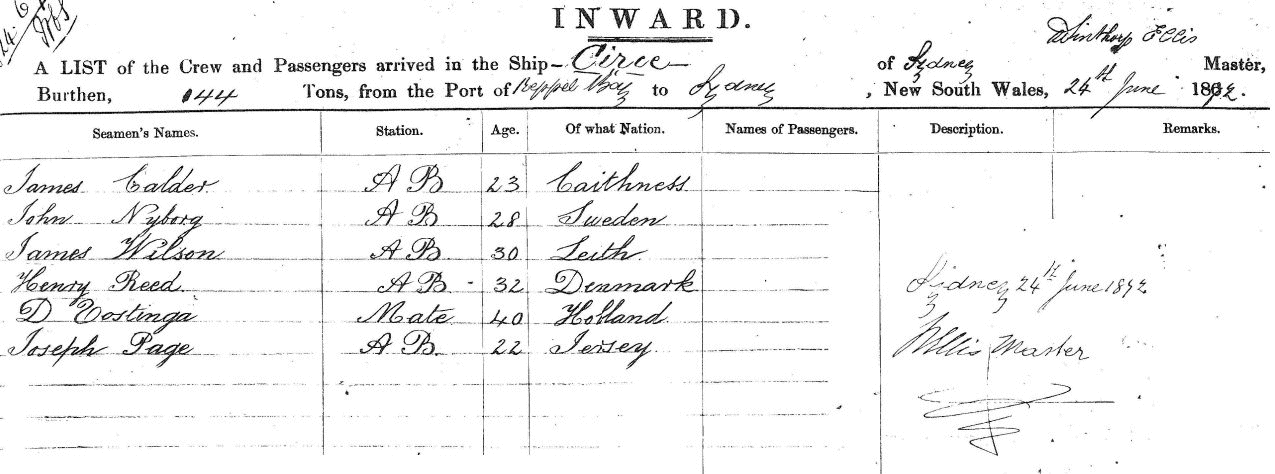 INWARD.
Winthorp Ellis
A LIST of the Crew and Passengers arrived in the Ship— Circe of Sydney Master,
Burthen, 144 Tons, from the Port of Keppel Bay to Sydney , New South Wales, 24th June 1872.
Seamen's Names. Station. Age. Of what Nation. Names of Passengers. Description. Remarks.
James Calder A B 23 Caithness
John Nyborg A B 28 Sweden
James Wilson A B 30 Leith
Henry Reed. A B. 32 Denmark
D Postinga Mate 40 Holland
Joseph Page A B. 22 Jersey
Sidney 24th June 1872
WEllis Master